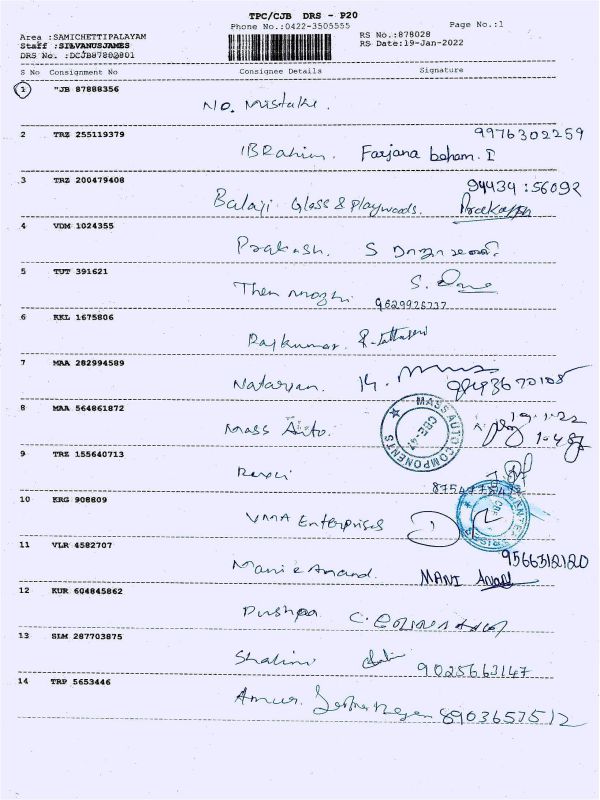 TPC/CJB DRS - P20
Phone No.:0422-3505555
Page No.:1
Area :SAMICHETTIPALAYAM
RS No.:878028
Staff :SILVANUSJAMES
RS Date:19-Jan-2022
DRS No. :DCJB87802801
S No Consignment No Consignee Details Signature
1 "JB 87888356
No. Mistake.
2 TRZ 255119379
9976302259
IBRahim. Farjana beham. I
3 TRZ 200479408
94434:56092
Balaji Glass & Playwoods. Prakash
4 VDM 1024355
Prakash. S
5 TUT 391621
Then mozhi S.
9629926737
6 KKL 1675806
Rajkumar.
7 MAA 282994589
Natarajan. K.
8 MAA 564861872
Mass Auto. 19.1.22
MASS AUTO COMPONENTS
CBE-47.
9 TRZ 155640713
10 KRG 908809
VMA Enterprises
11 VLR 4582707
9566312120
Mani & Anand. MANI Anand
12 KUR 604845862
Pushpa C.
13 SLM 287703875
Shalini
9025663147
14 TRP 5653446
8903657512